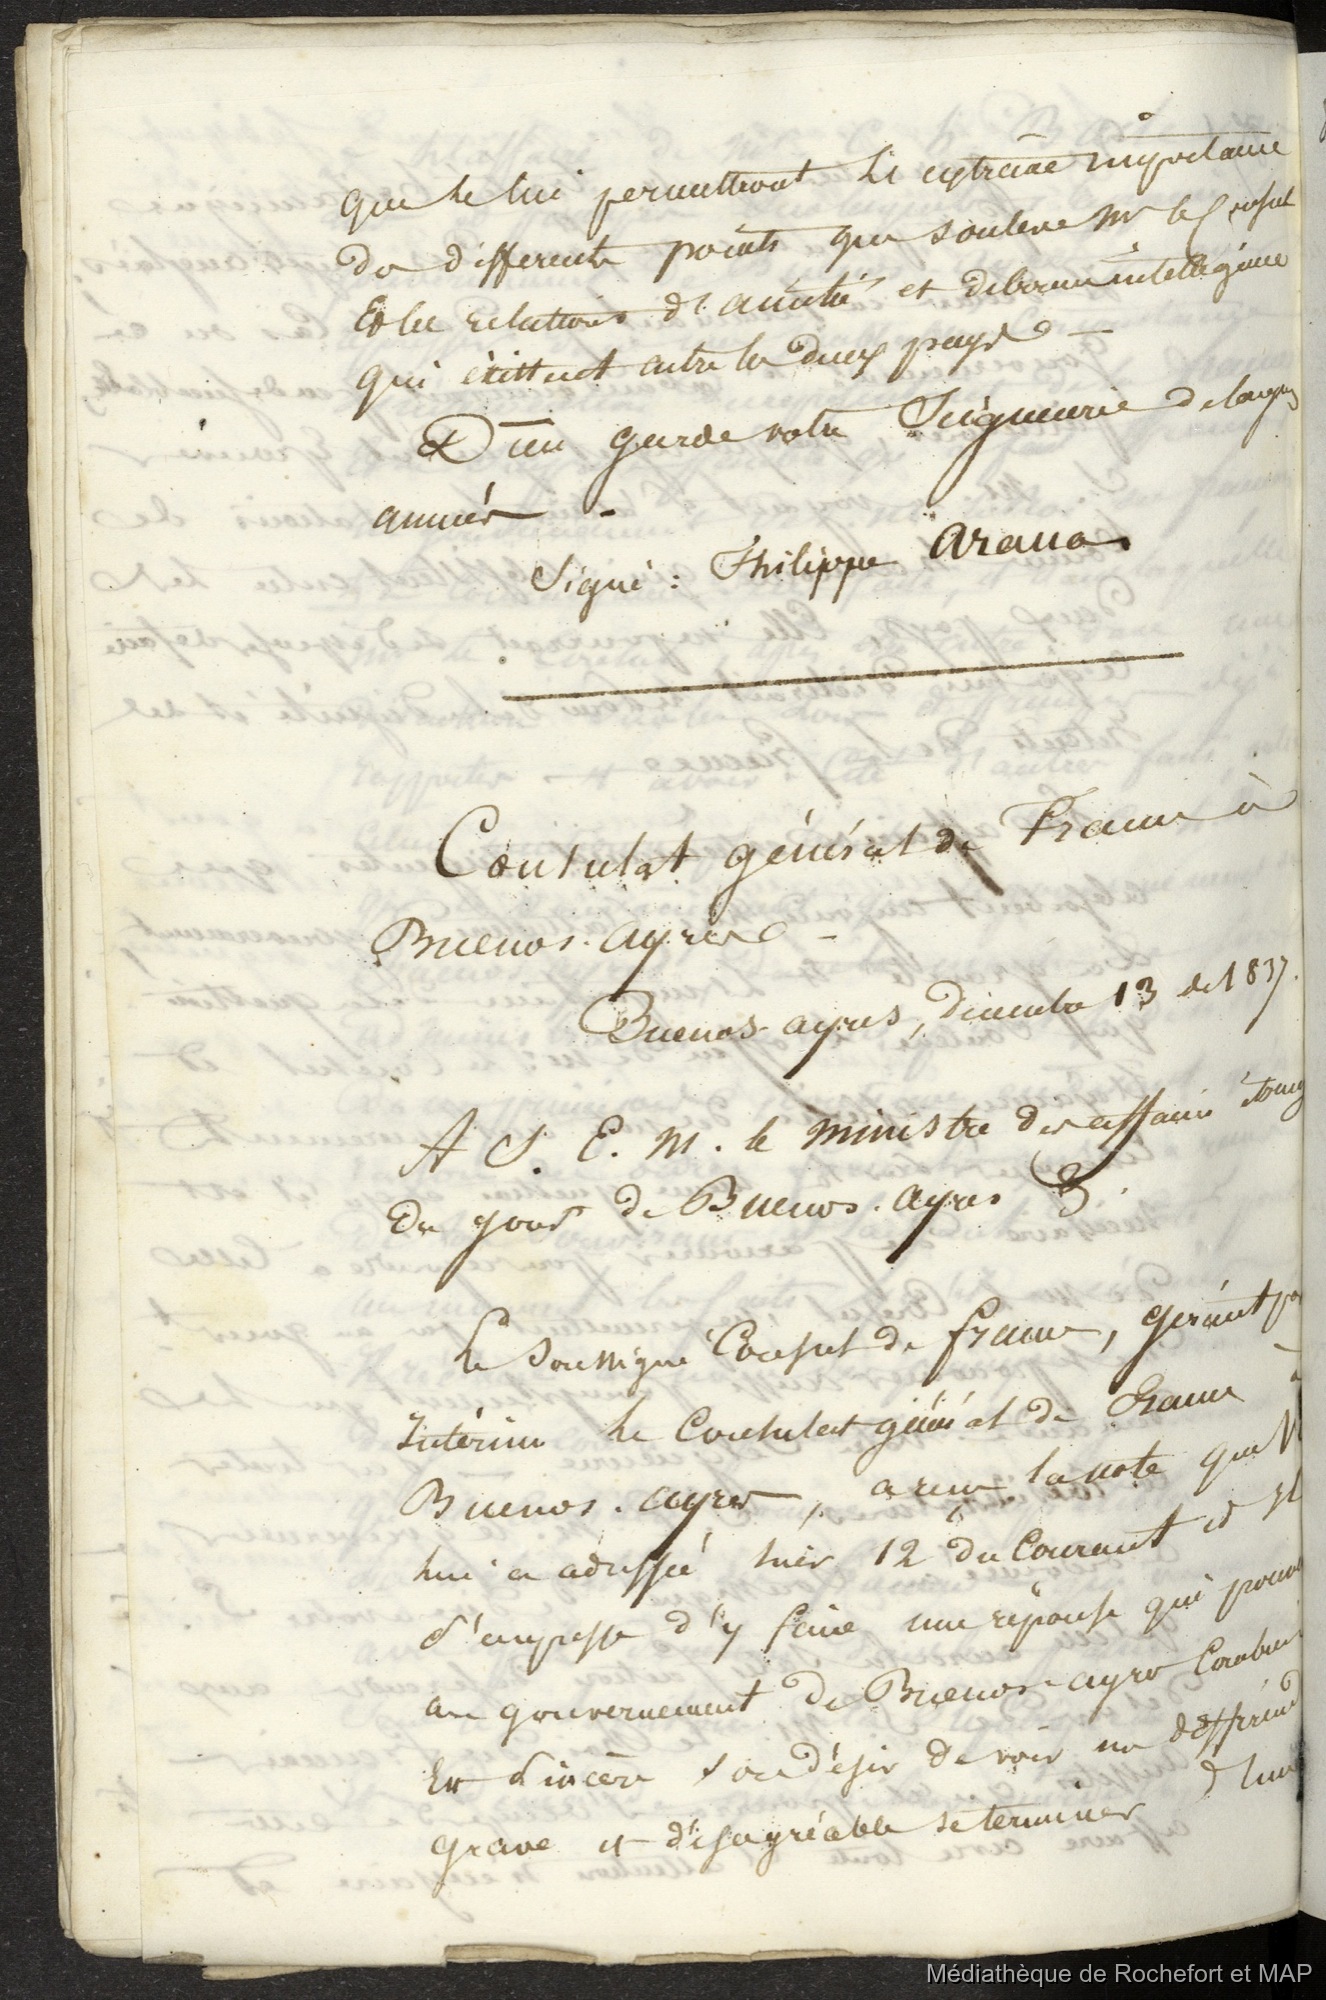 que le lui permettront la extrème importance
de differents points que souleve Mr le Consul
Et les relations d'amitié et de bonne intelligence
qui éxistent entre les deux pays —
Dieu garde votre Seigneurie de longues
années -
Signé : Philippe Arana
Consulat général de France à
Buenos-ayres -
Buenos-ayres, décembre 13 de 1837.
A S. E. M. le Ministre des affaires étrang
du gouvt de Buenos-ayres &.
Le Soussigné Consul de france, gérant par
Intérim le Consulat général de France à
Buenos-ayres, a reçu la note que V
lui a adressée hier 12 du Courant et il
s'empresse d'y faire une réponse qui prouve
au gouvernement de Buenos-ayres Combien
Est sincère son désir de voir un différend
grave et désagréable se terminer d'une
Médiathèque de Rochefort et MAP